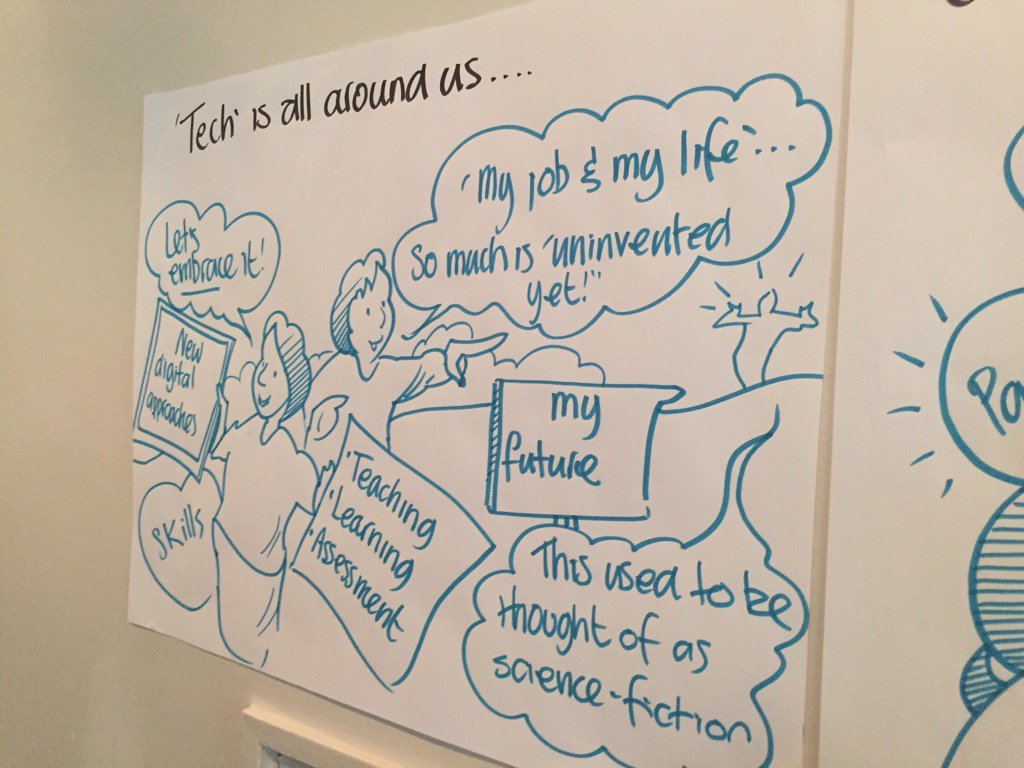 'Tech' is all around us....
'my job & my life'...
So much is 'uninvented
yet!''
Let's
embrace it!
New
digital
approaches
my
future
Skills
'Teaching
'Learning
'Assessment
This used to be
thought of as
science-fiction